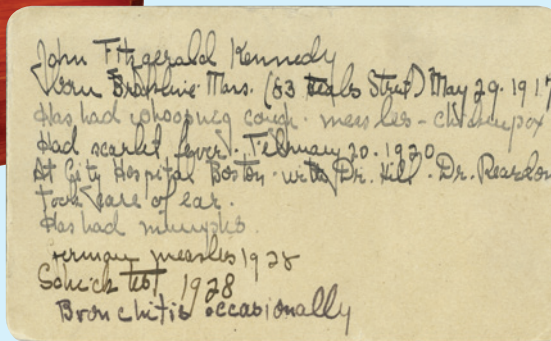 John Fitzgerald Kennedy
born Brookline Mass. (83 Beals Street) May 29. 1917
Has had whooping cough. measles - chicken pox
Had scarlet fever. February 20. 1920
At City Hospital Boston. with Dr. Hill. Dr. Reardon
took care of ear.
Has had mumps.
German measles 1928
Schick test 1928
Bronchitis occasionally